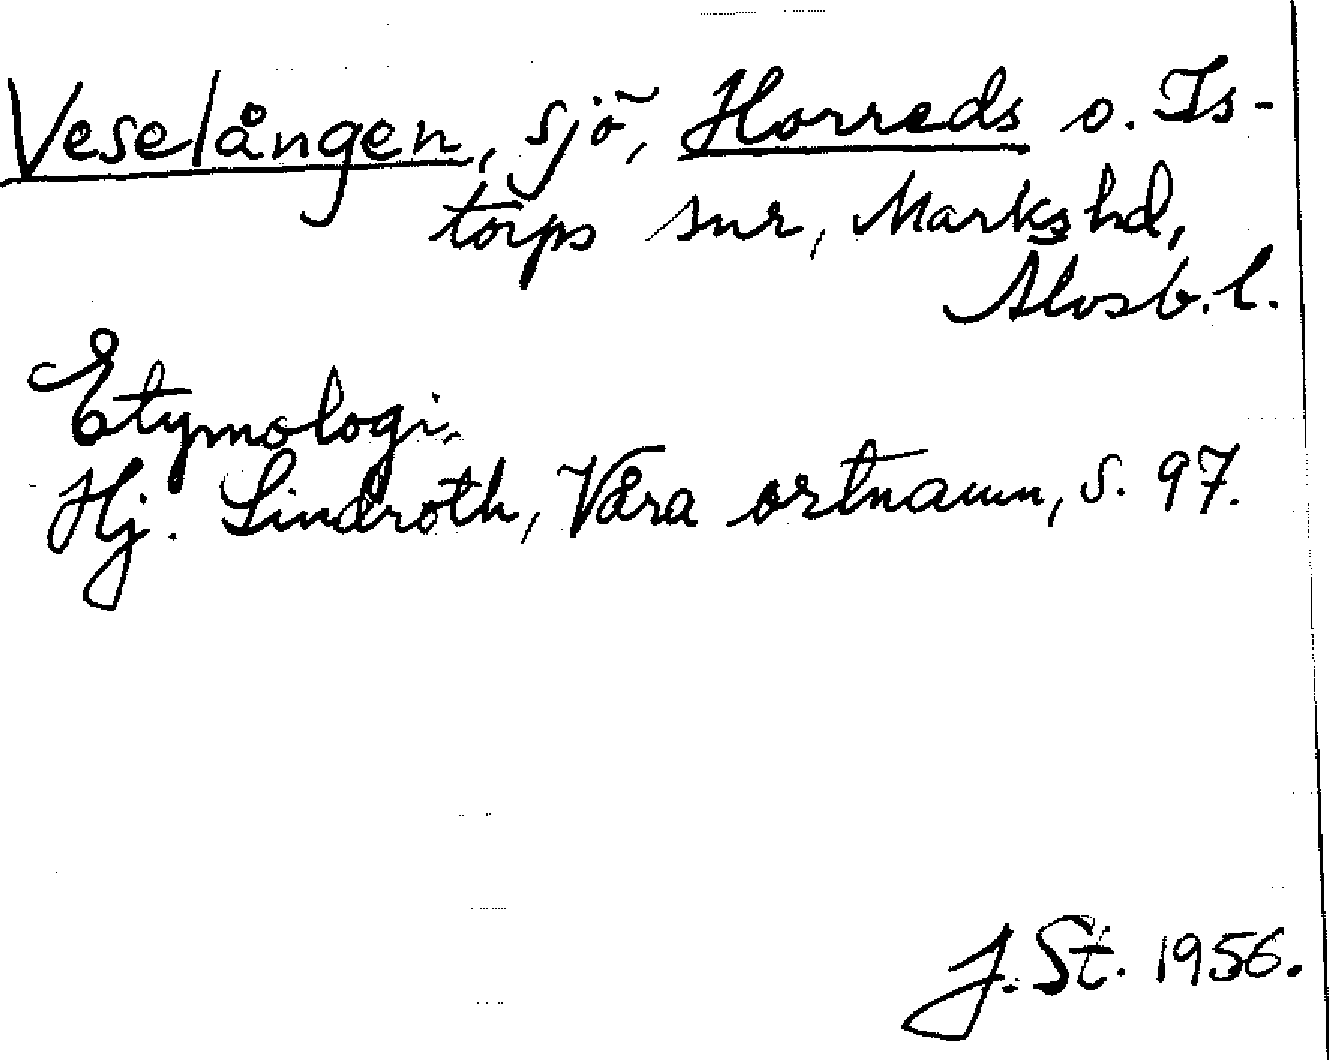 Veselången, sjö, Horreds o. Is-
torps snr, Marks hd,
Älvsb. l.
Etymologi.
Hj. Lindroth, Våra ortnamn, s. 97.
J. St. 1956.